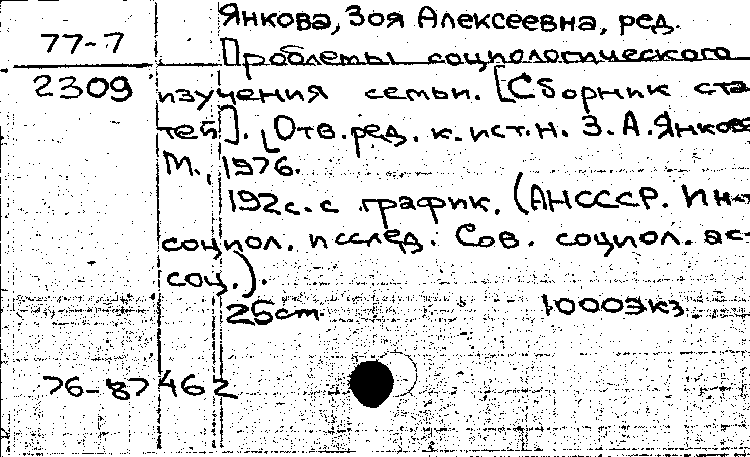 Янкова, Зоя Алексеевна, ред.
77-7
Проблемы социологического
2309
изучения семьи. [Сборник ста
тей]. [Отв. ред. к. ист. н. З. А. Янкова
М., 1976.
192с. с график. (АНСССР. Ин-т
социол. исслед. Сов. социол. ас-
соц.).
26см.
1000экз.
76-87462